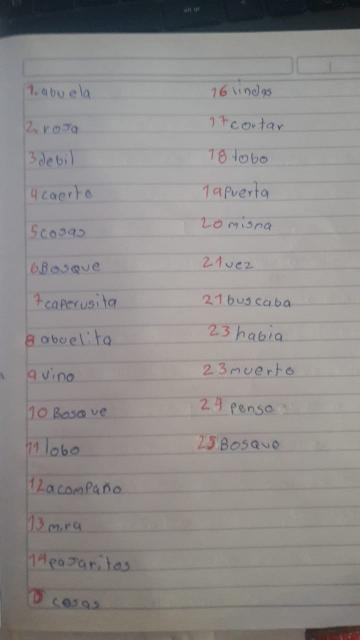 1. abuela
2. roja
3 debil
4 caerto
5 cosas
6 Bosque
7 caperusita
8 abuelita
9 vino
10 Bosque
11 lobo
12 acompaño
13 mira
14 pajaritos
15 cosas
16 lindas
17 cortar
18 lobo
19 Puerta
20 misna
21 vez
21 buscaba
23 habia
23 muerto
24 Penso
25 Bosque